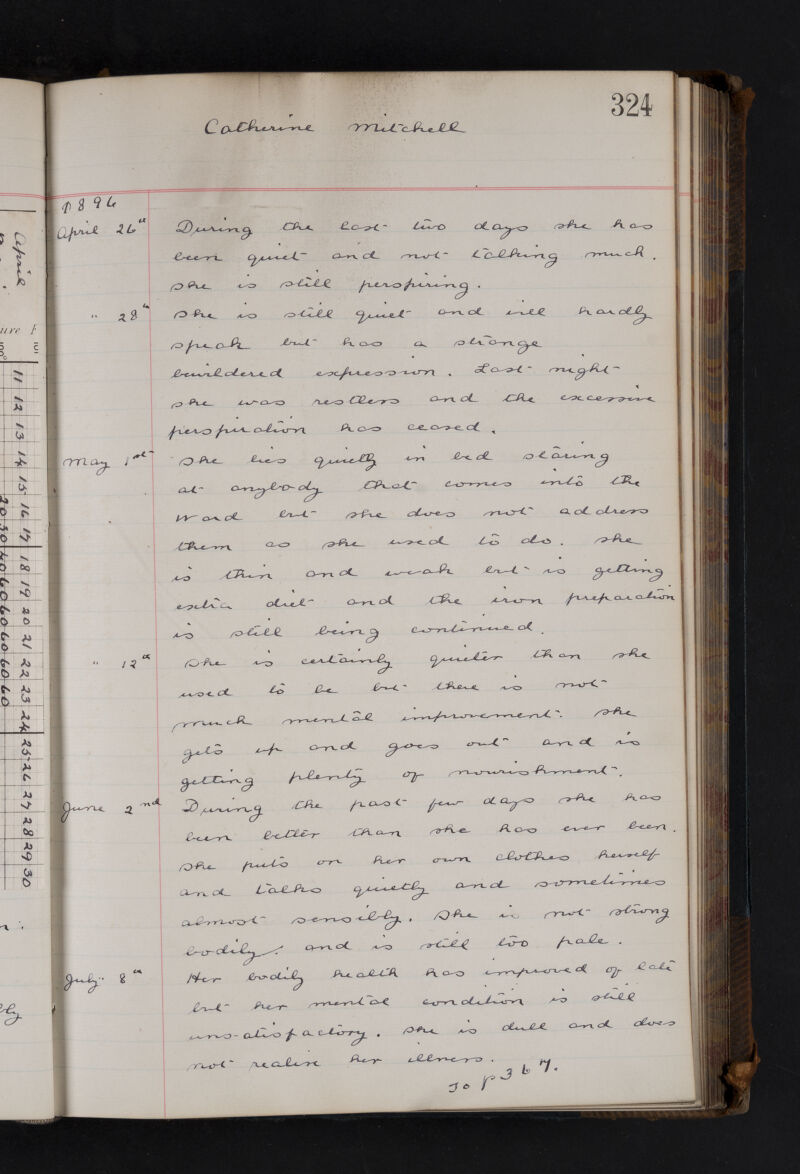 324
Catherine Mitchell
1896
April 26th During the last two days she has
been quiet and not talking much.
She is still perspiring.
" 28th She is still quiet and will hardly
speak but has a strange
bewildered expression. Last night
she was restless and the excessive
perspiration has ceased.
May 1st She lies quietly in bed staring
at anybody that comes into the
ward but she does not address
them as she used to do. She
is thin and weak but is getting
extra diet and the iron preparation
is still being continued.
" 12th She is certainly quieter than she
used to be but there is not
much mental improvement. She
gets up and goes out and is
getting plenty of nourishment.
June 2nd During the past few days she has
been better than she has ever been.
She puts on her own clothes herself
and talks quietly and sometimes
almost sensibly. She is not strong
bodily. and is still too pale.
July 8th Her bodily health has improved of late
but her mental condition is still
unsatisfactory. She is dull and does
not realise her illness.
To p 367.
April
11 12 13 14 15 16 17 18 19 20 21 22 23 24 25 26 27 28 29 30